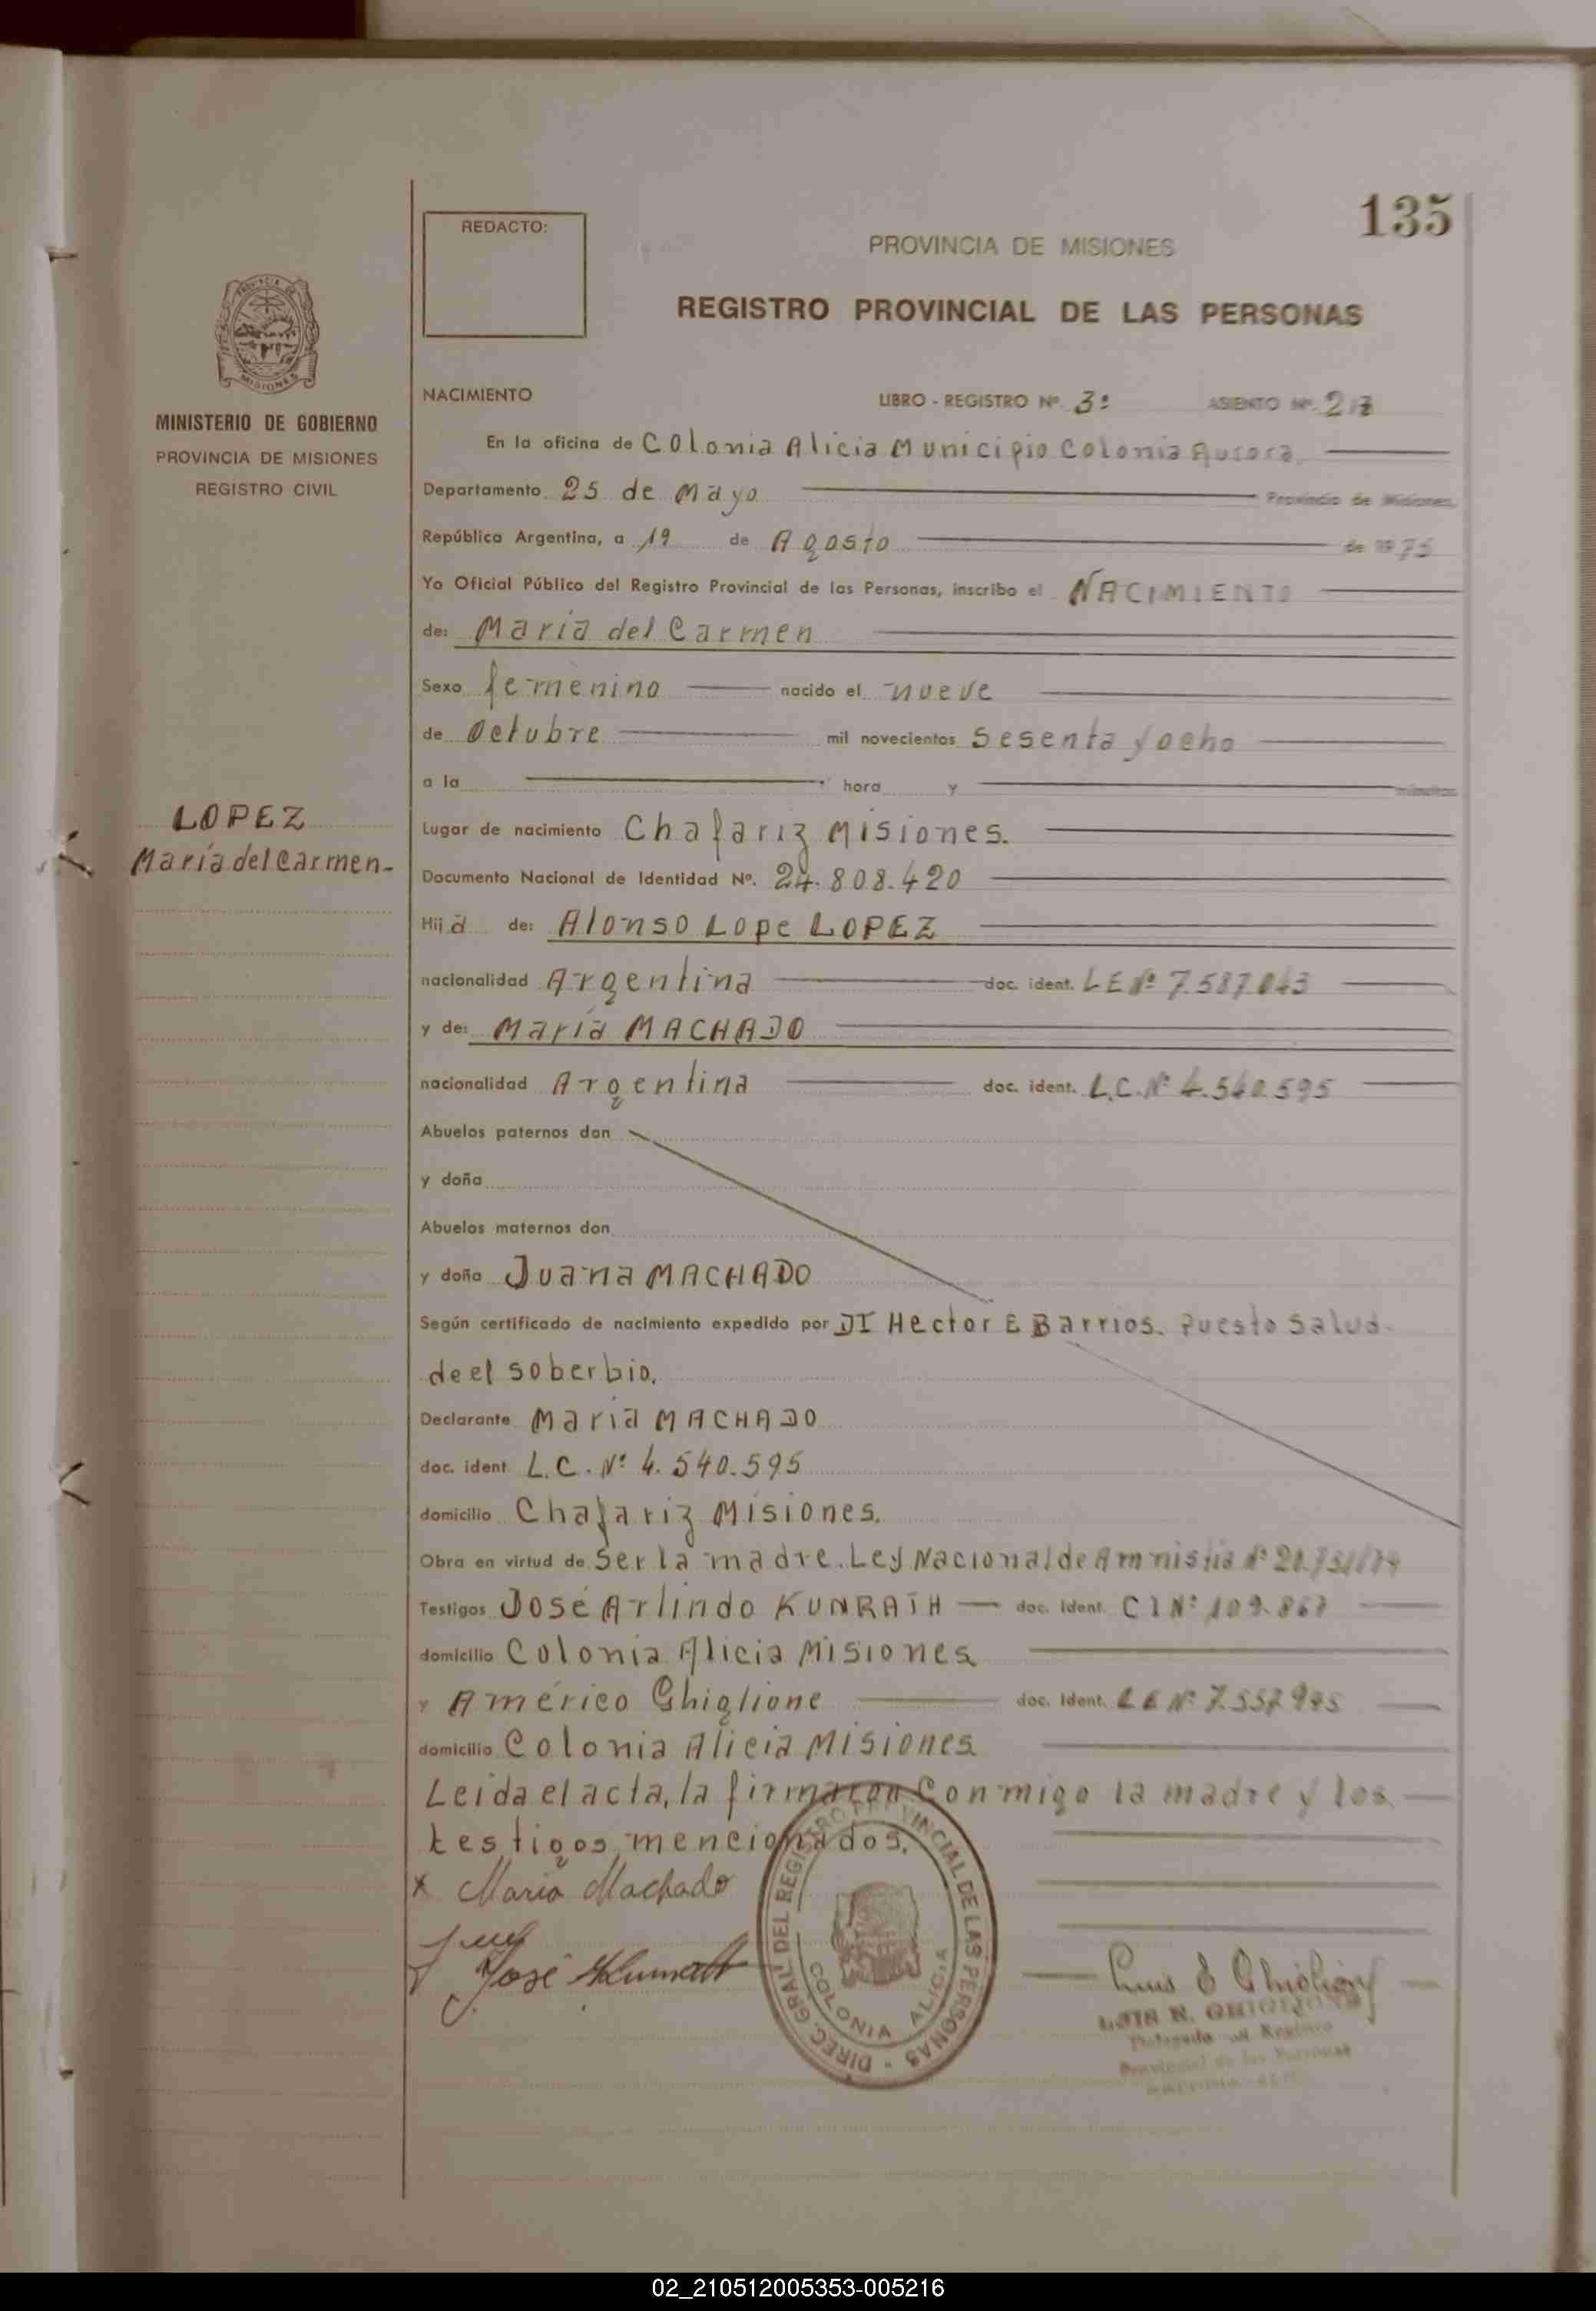 135
REDACTO:
PROVINCIA DE MISIONES
REGISTRO PROVINCIAL DE LAS PERSONAS
PROVINCIA DE
MISIONES
MINISTERIO DE GOBIERNO
PROVINCIA DE MISIONES
REGISTRO CIVIL
NACIMIENTO LIBRO - REGISTRO Nº 3º ASIENTO Nº
En la oficina de Colonia Alicia Municipio Colonia Aurora
Departamento 25 de Mayo Provincia de Misiones
República Argentina, a 19 de Agosto de 1975
Yo Oficial Público del Registro Provincial de las Personas, inscribo el NACIMIENTO
de: María del Carmen
Sexo femenino nacido el nueve
de Octubre mil novecientos sesenta y ocho
a la hora y minutos
LOPEZ
María del Carmen-
Lugar de nacimiento Chafariz Misiones.
Documento Nacional de Identidad Nº. 24.808.420
Hija de: Alonso Lope LOPEZ
nacionalidad Argentina doc. ident. LE Nº 7.587.043
y de: María MACHADO
nacionalidad Argentina doc. ident. L.C. Nº 4.540.595
Abuelos paternos don
y doña
Abuelos maternos don
y doña Juana MACHADO
Según certificado de nacimiento expedido por Hector E Barrios. Puesto Salud
de el soberbio.
Declarante María MACHADO
doc. ident L.C. Nº 4.540.595
domicilio Chafariz Misiones.
Obra en virtud de Ser la madre. Ley Nacional de Amnistia Nº
Testigos José Arlindo KUNRATH doc. Ident. C I Nº 109.867
domicilio Colonia Alicia Misiones
y Américo Ghiglione doc. Ident. LE Nº 7.557.945
domicilio Colonia Alicia Misiones
Leida el acta, la firmaron conmigo la madre y los
testigos mencionados.
x Maria Machado
José Kunrath
DIREC. GRAL DEL REGISTRO PROVINCIAL DE LAS PERSONAS
COLONIA ALICIA
Delegado del Registro
Provincial de las Personas
02_210512005353-005216